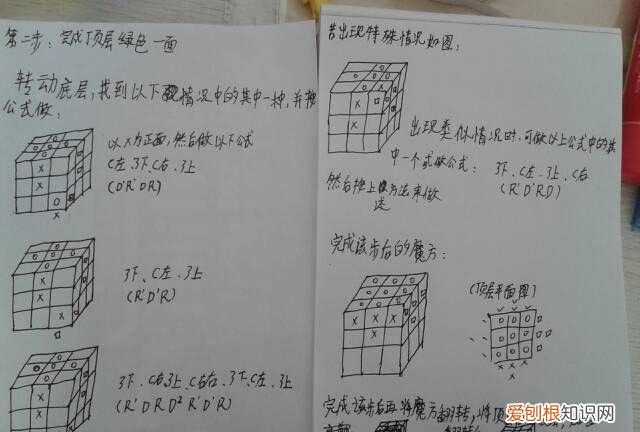 第二步:完成顶层绿色一面
转动底层,找到以下情况中的其中一种,并按
公式做:
以X为正面,然后做以下公式
C左.3下.C右.3上
(D'R'DR)
3下.C左.3上
(R'D'R)
3下.C右.3上.C右右.3下.C左.3上
(R'DRD²R'D'R)
若出现特殊情况如图:
出现类似情况时,可做以上公式中的其
中一个或做公式:3下.C左.3上.C右
(R'D'RD)
然后按上方法来做
完成该步后的魔方:
(顶层平面图)
完成该步后再将魔方翻转,将顶
爱刨根知识网